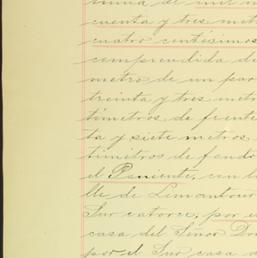 mina de mil n
cuenta y tres met
cuatro centisimos
comprendida de
metro de un par
treinta y tres metr
timetros de frente
ta y siete metros
timetros de fondo
el Poniente, con la
lle de Lemantour
Sur catorce, por e
casa del Señor Don
por el Sur casa d